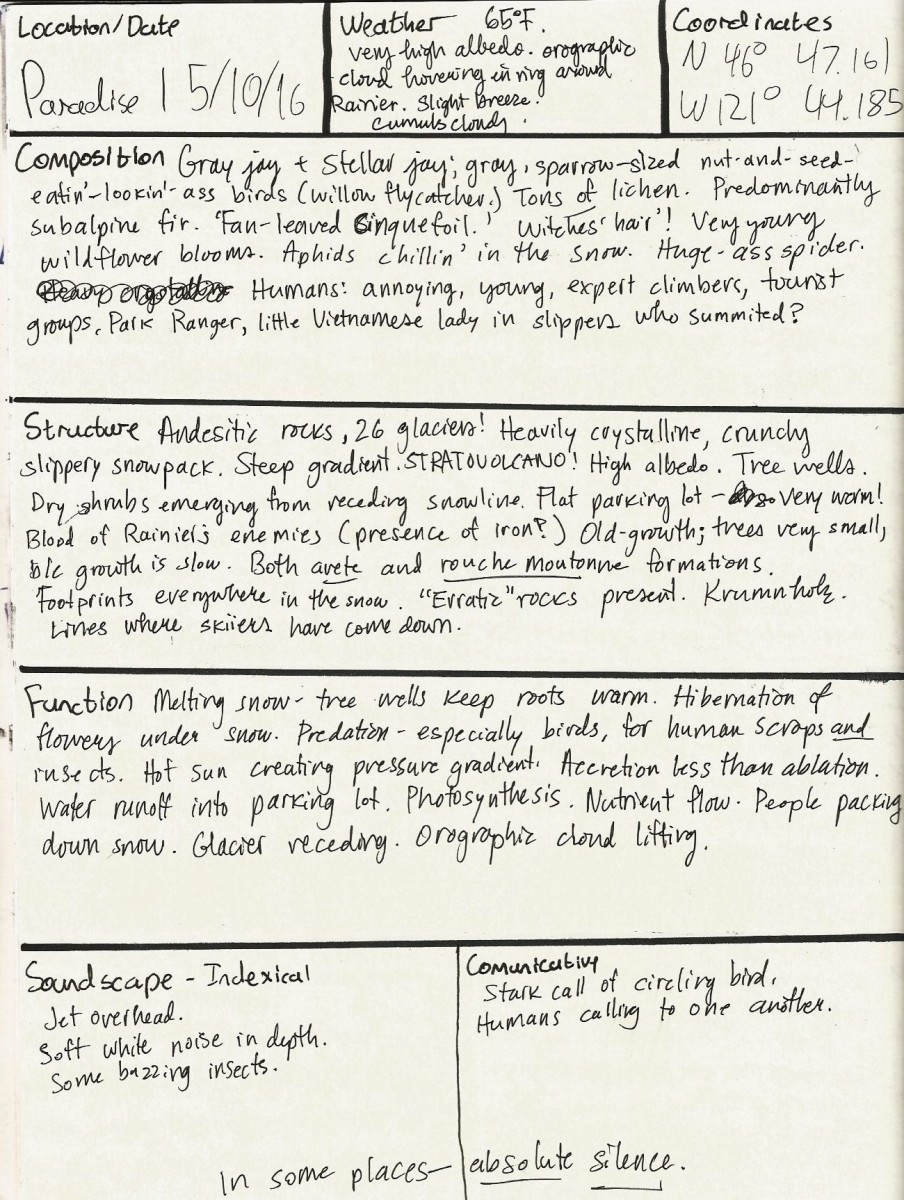 Location/Date
Paradise | 5/10/16
Weather 65°F.
very high albedo. orographic
cloud hovering in ring around
Rainier. Slight breeze.
cumulus clouds.
Coordinates
N 46° 47.161
W 121° 44.185
Composition Gray jay + Stellar jay; gray, sparrow-sized nut-and-seed-
eatin'-lookin'-ass birds (willow flycatcher.) Tons of lichen. Predominantly
subalpine fir. 'Fan-leaved Cinquefoil.' 'Witches' hair'! Very young
wildflower blooms. Aphids chillin' in the snow. Huge-ass spider.
Humans: annoying, young, expert climbers, tourist
groups, Park Ranger, little Vietnamese lady in slippers who summited?
Structure Andesitic rocks, 26 glaciers! Heavily crystalline, crunchy
slippery snowpack. Steep gradient. STRATOVOLCANO! High albedo. Tree wells.
Dry shrubs emerging from receding snowline. Flat parking lot - very warm!
Blood of Rainier's enemies (presence of iron?) Old-growth; trees very small,
b/c growth is slow. Both arete and rouche moutonne formations.
Footprints everywhere in the snow. "Erratic" rocks present. Krumnholz.
Lines where skiiers have come down.
Function Melting snow - tree wells keep roots warm. Hibernation of
flowers under snow. Predation - especially birds, for human scraps and
insects. Hot sun creating pressure gradient. Accretion less than ablation.
Water runoff into parking lot. Photosynthesis. Nutrient flow. People packing
down snow. Glacier receding. Orographic cloud lifting.
Soundscape - Indexical
Jet overhead.
Soft white noise in depth.
Some buzzing insects.
Comunicative
Stark call of circling bird.
Humans calling to one another.
In some places— absolute silence.